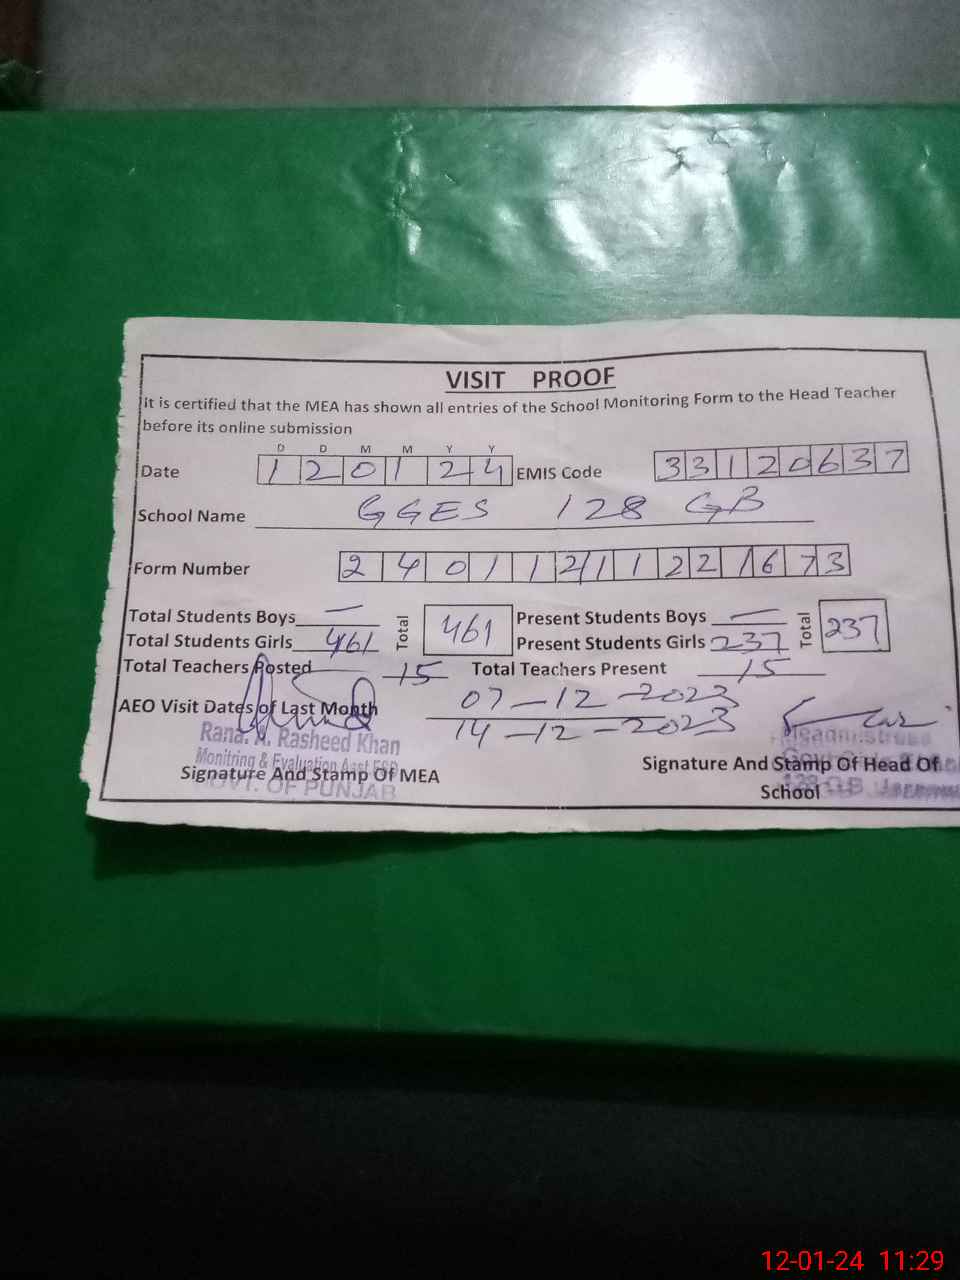 VISIT PROOF
It is certified that the MEA has shown all entries of the School Monitoring Form to the Head Teacher
before its online submission
D D M M Y Y
Date 1 2 0 1 2 4 EMIS Code 3 3 1 2 0 6 3 7
School Name GGES 128 GB
Form Number 2 4 0 1 1 2 1 1 2 2 1 6 7 3
Total Students Boys — Total 461 Present Students Boys — Total 237
Total Students Girls 461 Present Students Girls 237
Total Teachers Posted 15 Total Teachers Present 15
AEO Visit Dates of Last Month 07-12-2023
14-12-2023
Rana. A. Rasheed Khan
Monitring & Evaluation Asst
Signature And Stamp Of MEA
GOVT. OF PUNJAB
Headmistress
Signature And Stamp Of Head Of
School
128 G.B
12-01-24 11:29